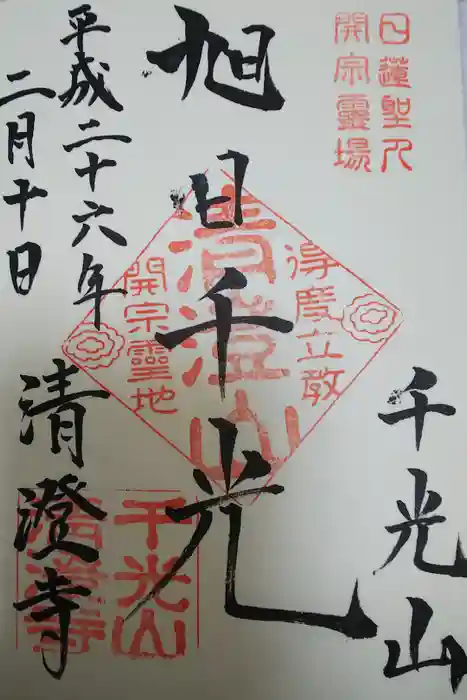 日蓮聖人
開宗靈場
千光山
旭日千光
清澄山
得度立教
開宗靈地
平成二十六年
二月十日
清澄寺
千光山
清澄寺